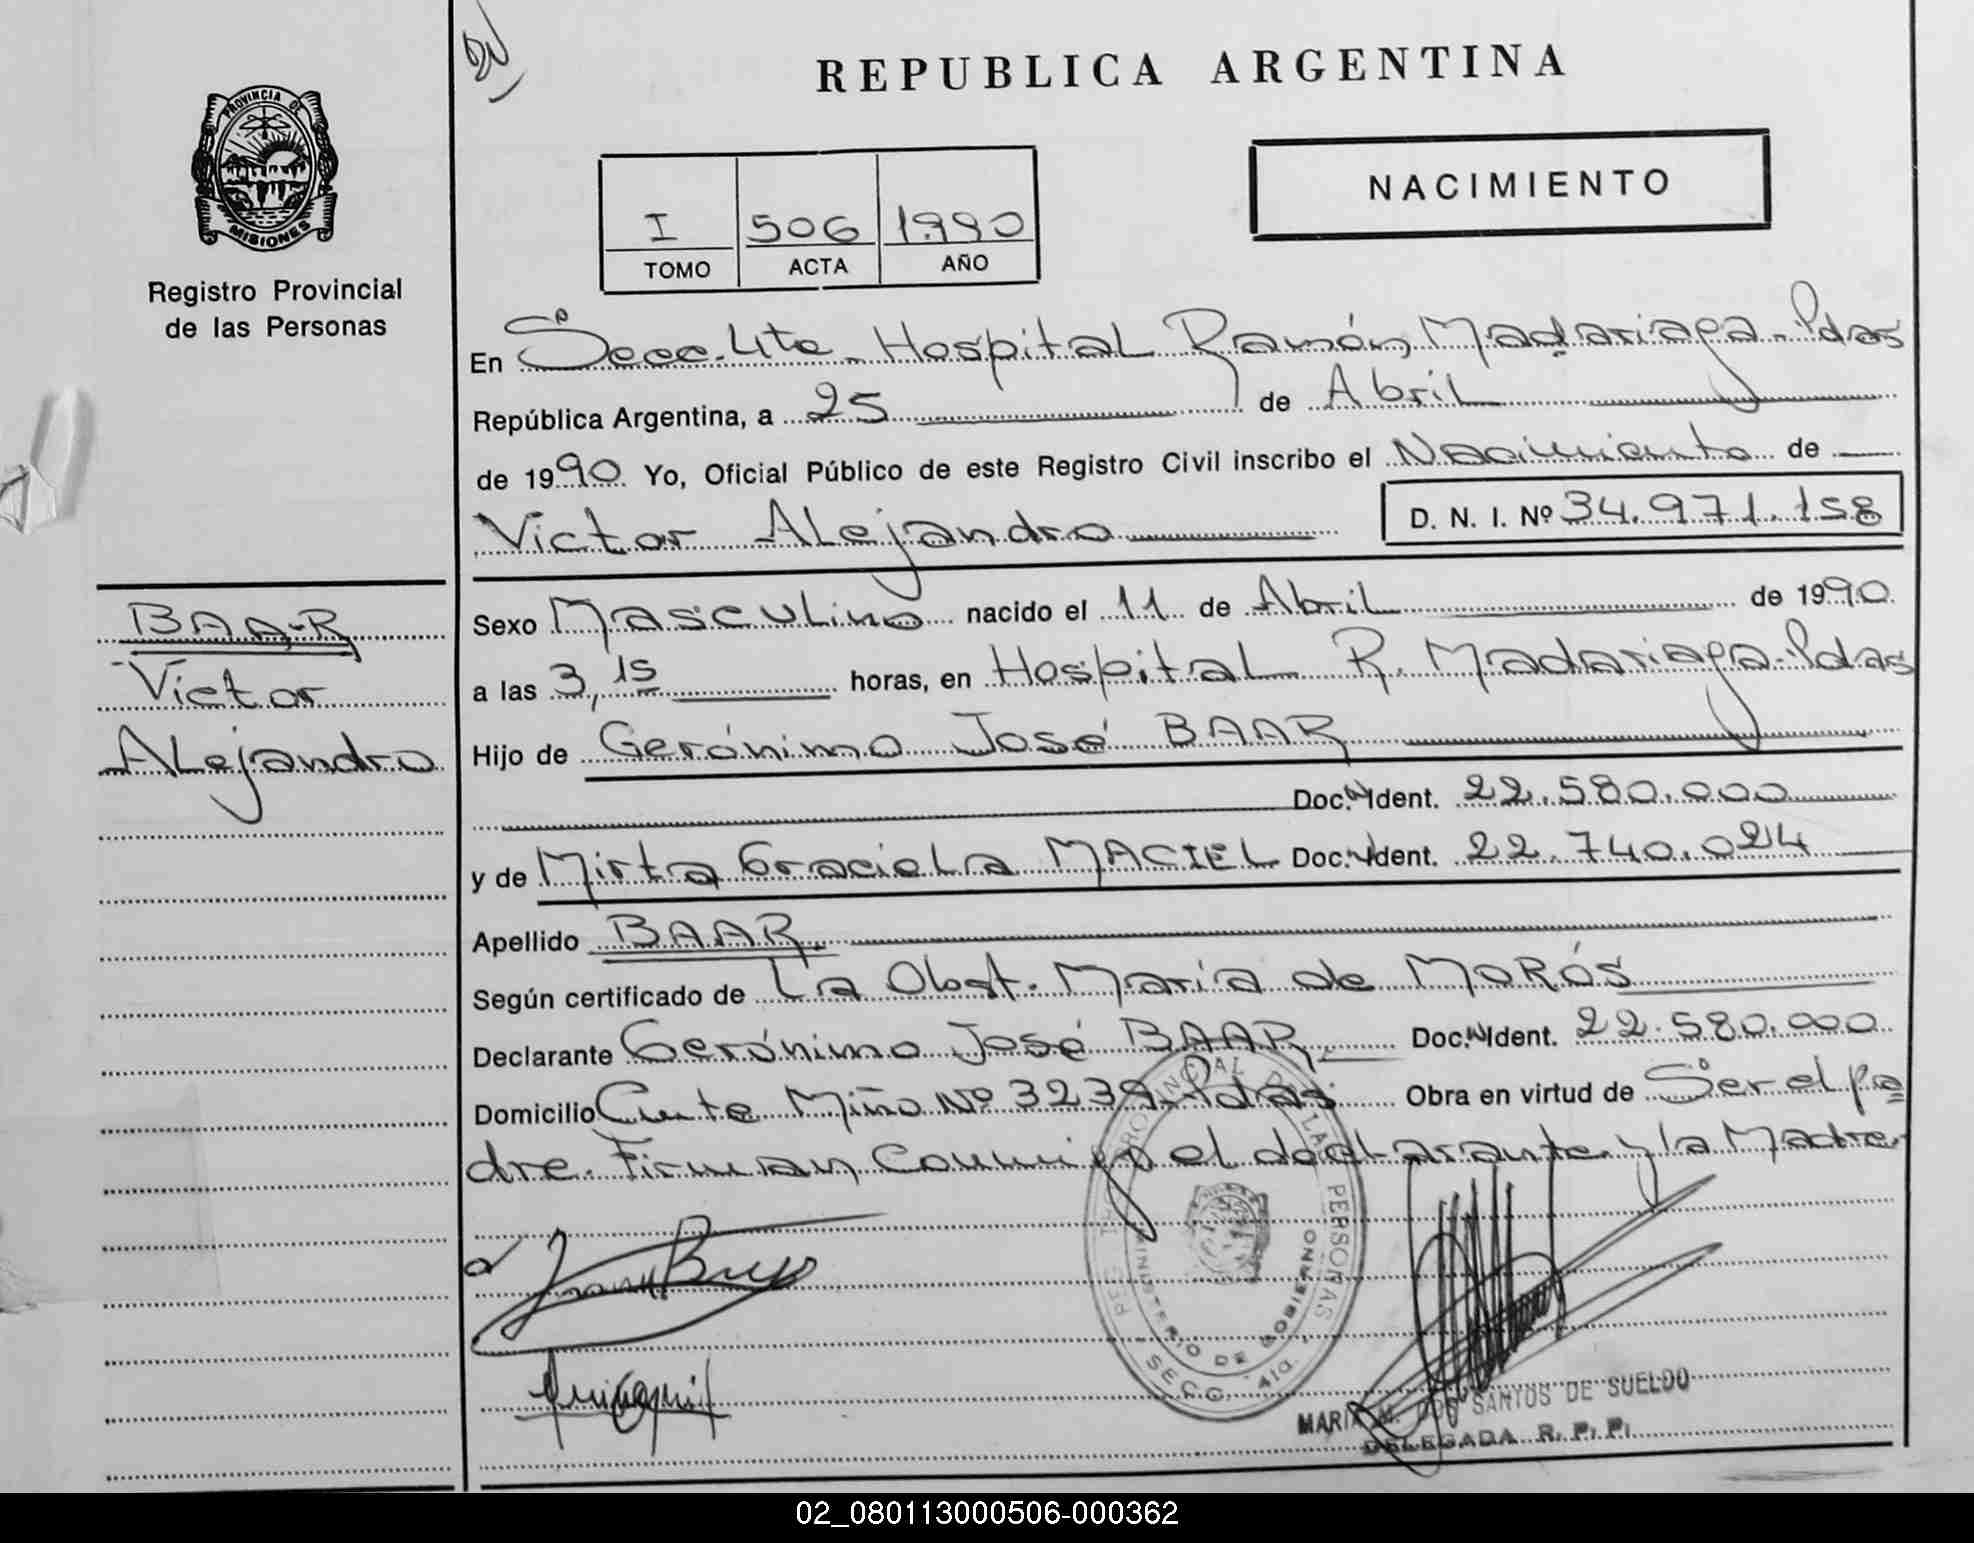 REPUBLICA ARGENTINA
PROVINCIA DE
MISIONES
Registro Provincial
de las Personas
NACIMIENTO
I 506 1990
TOMO ACTA AÑO
En Secc. 4ta. Hospital Ramón Madariaga - Pdas
República Argentina, a 25 de Abril
de 1990 Yo, Oficial Público de este Registro Civil inscribo el Nacimiento de
Victor Alejandro D. N. I. Nº 34.971.158
BAAR
Victor
Alejandro
Sexo Masculino nacido el 11 de Abril de 1990
a las 3,15 horas, en Hospital R. Madariaga - Pdas
Hijo de Gerónimo José BAAR
Doc. N. Ident. 22.580.000
y de Mirta Graciela MACIEL Doc. N. Ident. 22.740.024
Apellido BAAR.
Según certificado de La Obst. María de MoRós
Declarante Gerónimo José BAAR Doc. N. Ident. 22.580.000
Domicilio Cnte Miño Nº 3239 - Pdas; Obra en virtud de Ser el pa
dre. Firman conmigo el declarante y la Madre.
PROVINCIAL DE LAS PERSONAS
MINISTERIO DE GOBIERNO
SECC. 4ta.
MARIA M. DOS SANTOS DE SUELDO
DELEGADA R. P. P.
02_080113000506-000362